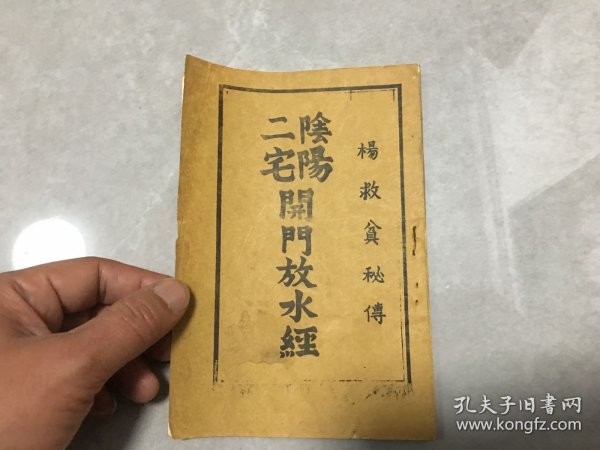 楊救貧秘傳
陰陽二宅開門放水經
孔夫子旧書网
www.kongfz.com